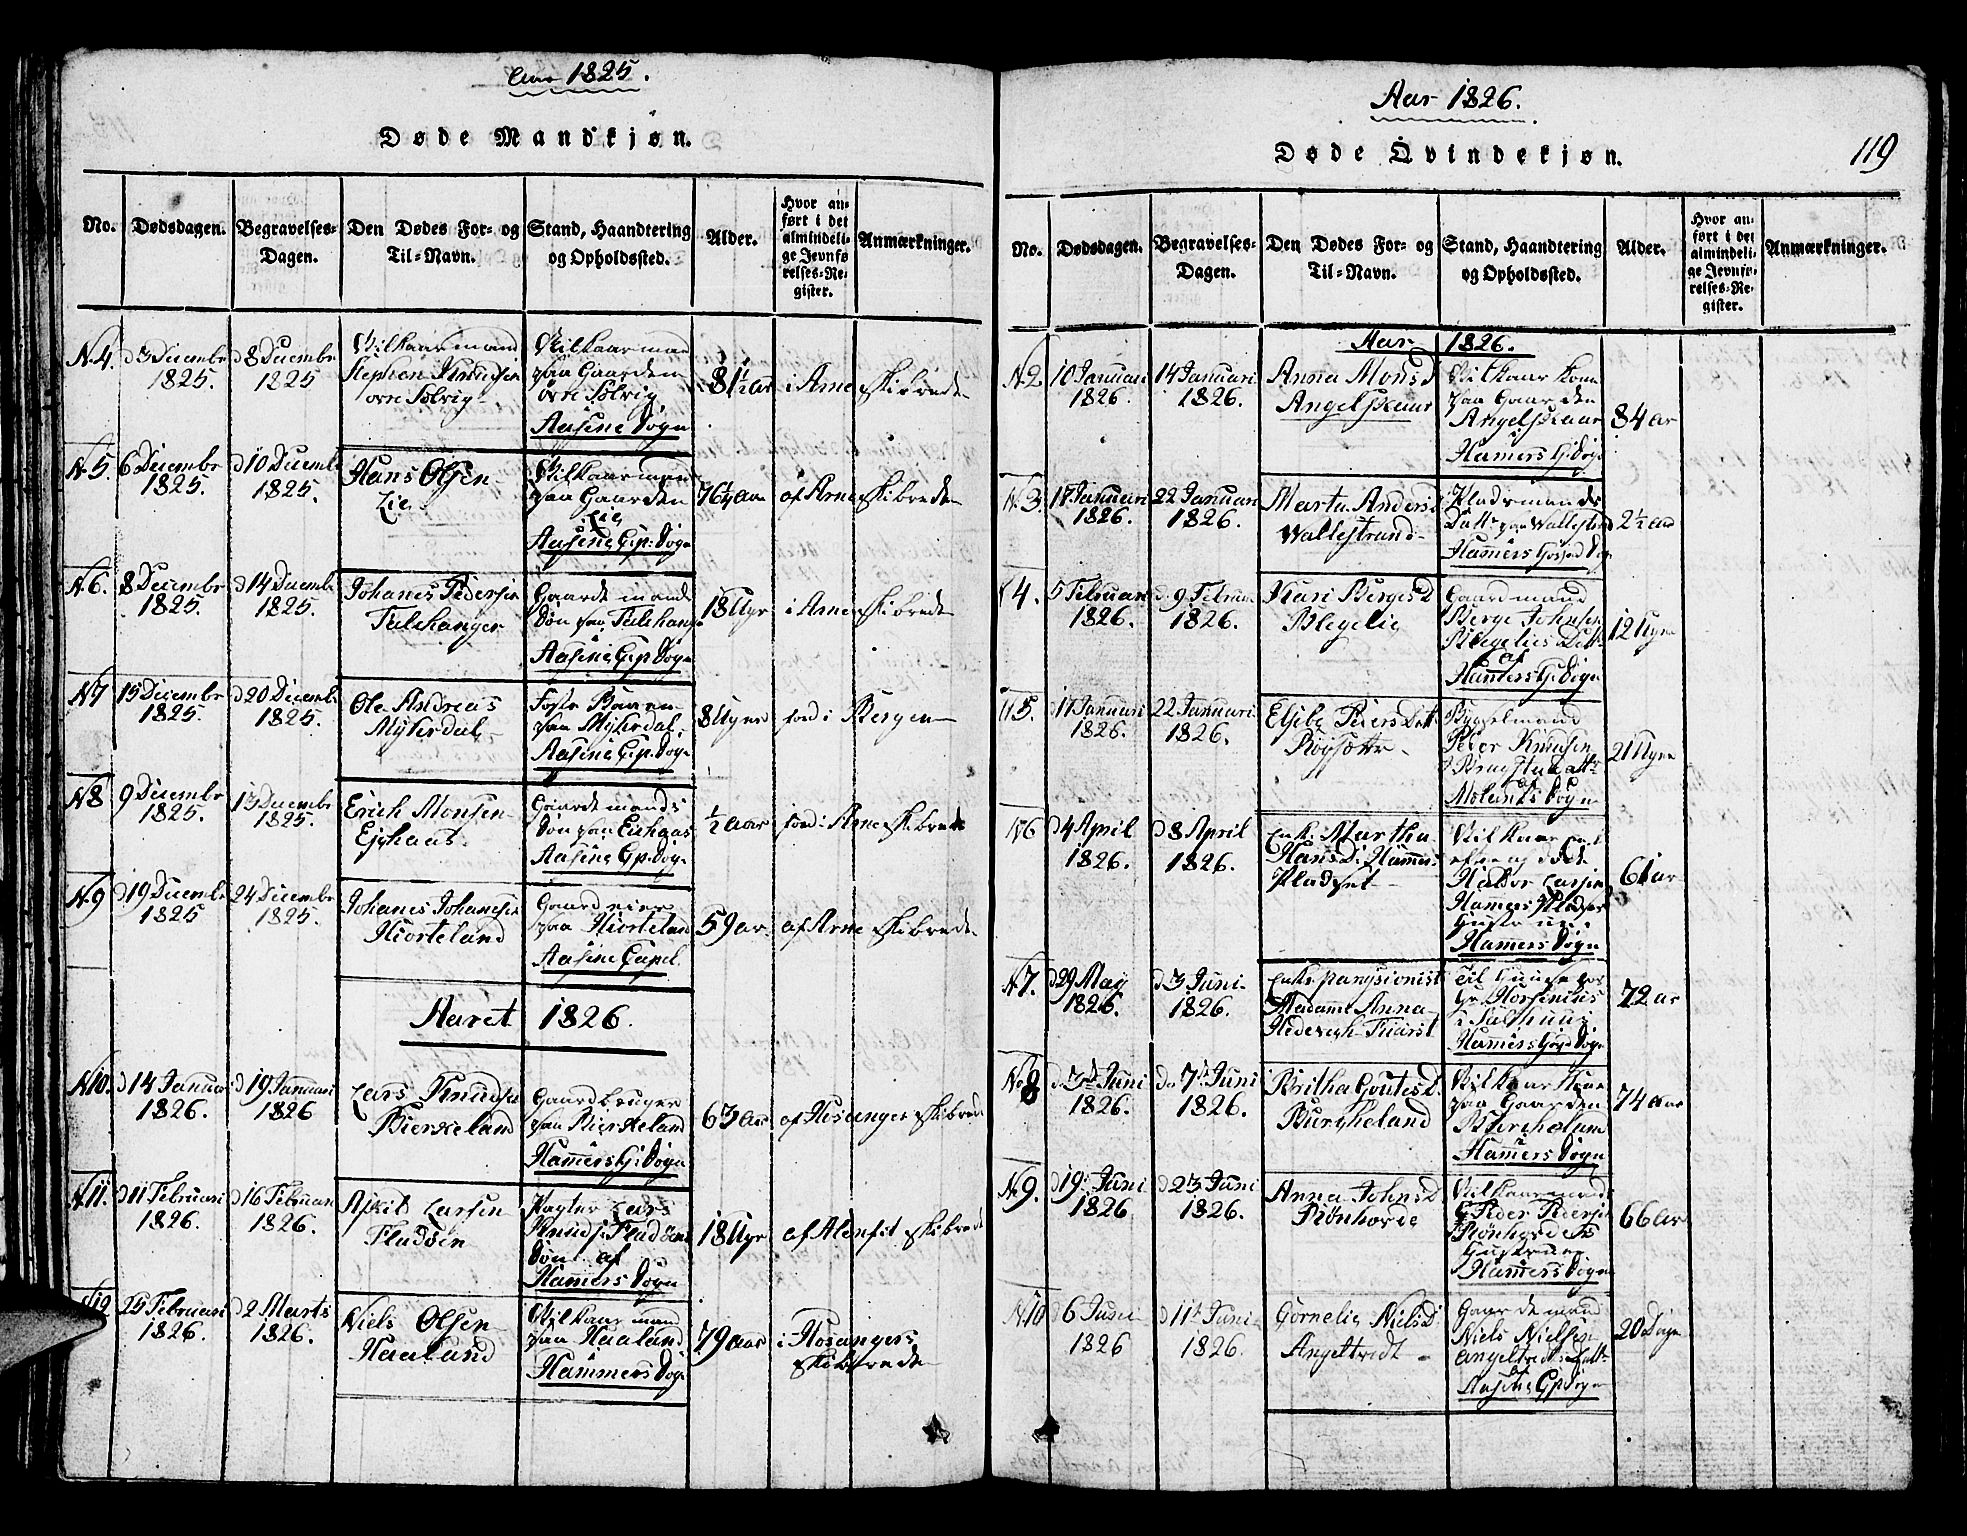 Aar 1825.
Døde Mandkjøn.
No.
Dødsdagen.
Begravelses-
Dagen.
Den Dødes For- og
Til-Navn.
Stand, Haandtering
og Opholdssted.
Alder.
Hvor an-
ført i det
almindeli-
ge Jevnfø
relses-Re-
gister.
Anmærkninger.
N.4.
d 3 Decembr
1825.
d 8 Decembr
1825
Vilkaarmand
Stephen Knudsen
øvre Solvig
Vilkaarmand
paa Gaarden
øvre Solvig,
Aasene Sogn
81½ aar
i Arne Skibrede
N.5
6 Decembr
1825.
d 10 Decembr
1825.
Hans Olsen
Lie
Vilkaarmand
paa Gaarden
Lie
Aasene Cap: Sogn
76¼ aar
af Arne Skibrede
N.6.
8 Decembr
1825.
d 14 Decembr
1825.
Johanes Pedersen
Tulehanger
Gaardemands
Søn paa Tulehanger
Aasene Cap Sogn
18 Uger
i Arne Skibrede
N7
15 Decembr
1825.
d 20 Decembr
1825.
Ole Andreas
Myherdal
Foster Baren
paa Myherdal,
Aasene Cap: Sogn
8 Uger
fød i Bergen
N8
9 Decembr
1825.
13 Decembr
1825.
Erich Monsen
Eghaas.
Gaardemands
Søn paa Eichaas
Aasene Cap: Sogn
½ Aar
fød i Arne Skibrede
N.9
d 19 Decembr
1825
24 Decembr
1825.
Johanes Johansen
Hiorteland
Gaardeier
paa Hiorteland
Aasene Capel.
59 ar.
af Arne Skibrede
Aaret 1826.
N10.
d 14 Januar
1826.
d 19 Januari
1826
Lars Knudsen
Bierkeland
Gaardbruger
paa Bierkeland
Hamers G: Sogn
63 ar
af Hosanger Skibrede
N11.
d 11 Februari
1826.
d 16 Februari
1826.
Axel Larsen
Fladøen
Pagter Lars
Knuds: Fladøens
Søn af
Hamers Sogn
18 Uger
af Alenfit Skibrede
N12
25 Februari
1826.
d 2 Marts
1826.
Niels Olsen
Haaland
Vilkaarmand
paa Haaland
Hammers Sogn
79 aar
i Hosangers
Skibrede
Aar 1826.
Døde Qvindekjøn.
119
No.
Dødsdagen.
Begravelses-
Dagen.
Den Dødes For- og
Til-Navn.
Stand, Haandtering
og Opholdssted.
Alder.
Hvor an-
ført i det
almindeli-
ge Jevnfø-
relses-Re-
gister.
Anmærkninger.
Aar 1826.
N.2
10 Januari
1826.
14 Januari
1826.
Anna Monsd
Angelskaar
Vilkaar Kone
paa Gaarden
Angelskaar
Hamers G: Sogn
84 ar
N.3
17 Januari
1826.
22 Januari
1826.
Marta Andersd
Wallestrand
Pladsmands
Datt: paa Wallestrand
Hamers Sogn
2½ aar
N4.
5 Februari
1826.
d 9 Februar
1826.
Kari Bergesd
Blegelie
Gaardmand
Berge Johnsen
Blegelies Datt:
af
Hamers G: Sogn
12 Ugr
N5.
d 17 Januari
1826.
22 Januari
1826.
Elsebe Peiersdatt
Røysætr
Peder Knudsen
Sogn
21 Ugr
N6
d 4 April
1826.
d 8 April
1826.
Enke Martha
Hansd: Hamers
Pladset
Halvor Larsen
Hamers Pladser
Hamers Sogn
61 ar
N.7.
d 29 May
1826.
d 3 Juni
1826.
Enke pangsionist
Madame Anna
Hamers Sogn
72 ar
No 8
d 3d Juni
1826.
d. 7d Juni
1826.
Britha Goutesd.
Burcheland
Vilkaar Kone
paa Gaarden
Burcheland
Hamers Sogn
74 aar
N.9.
d 19: Juni
1826
d 23 Juni
1826.
Anna Johnsd
Rønhovde
Vilkaarmand
Peder Pedersen
Rønhovdes
Hustrue
Hamers Sogn
66 ar
N10
d 6 Juni
1826
d 11d Juni
1826.
Cornelia Nielsd
Angeltvedt
Gaardemand
Niels Nielsen
Angeltveds Datt:
Aasene Cp Sogn
20 Dage